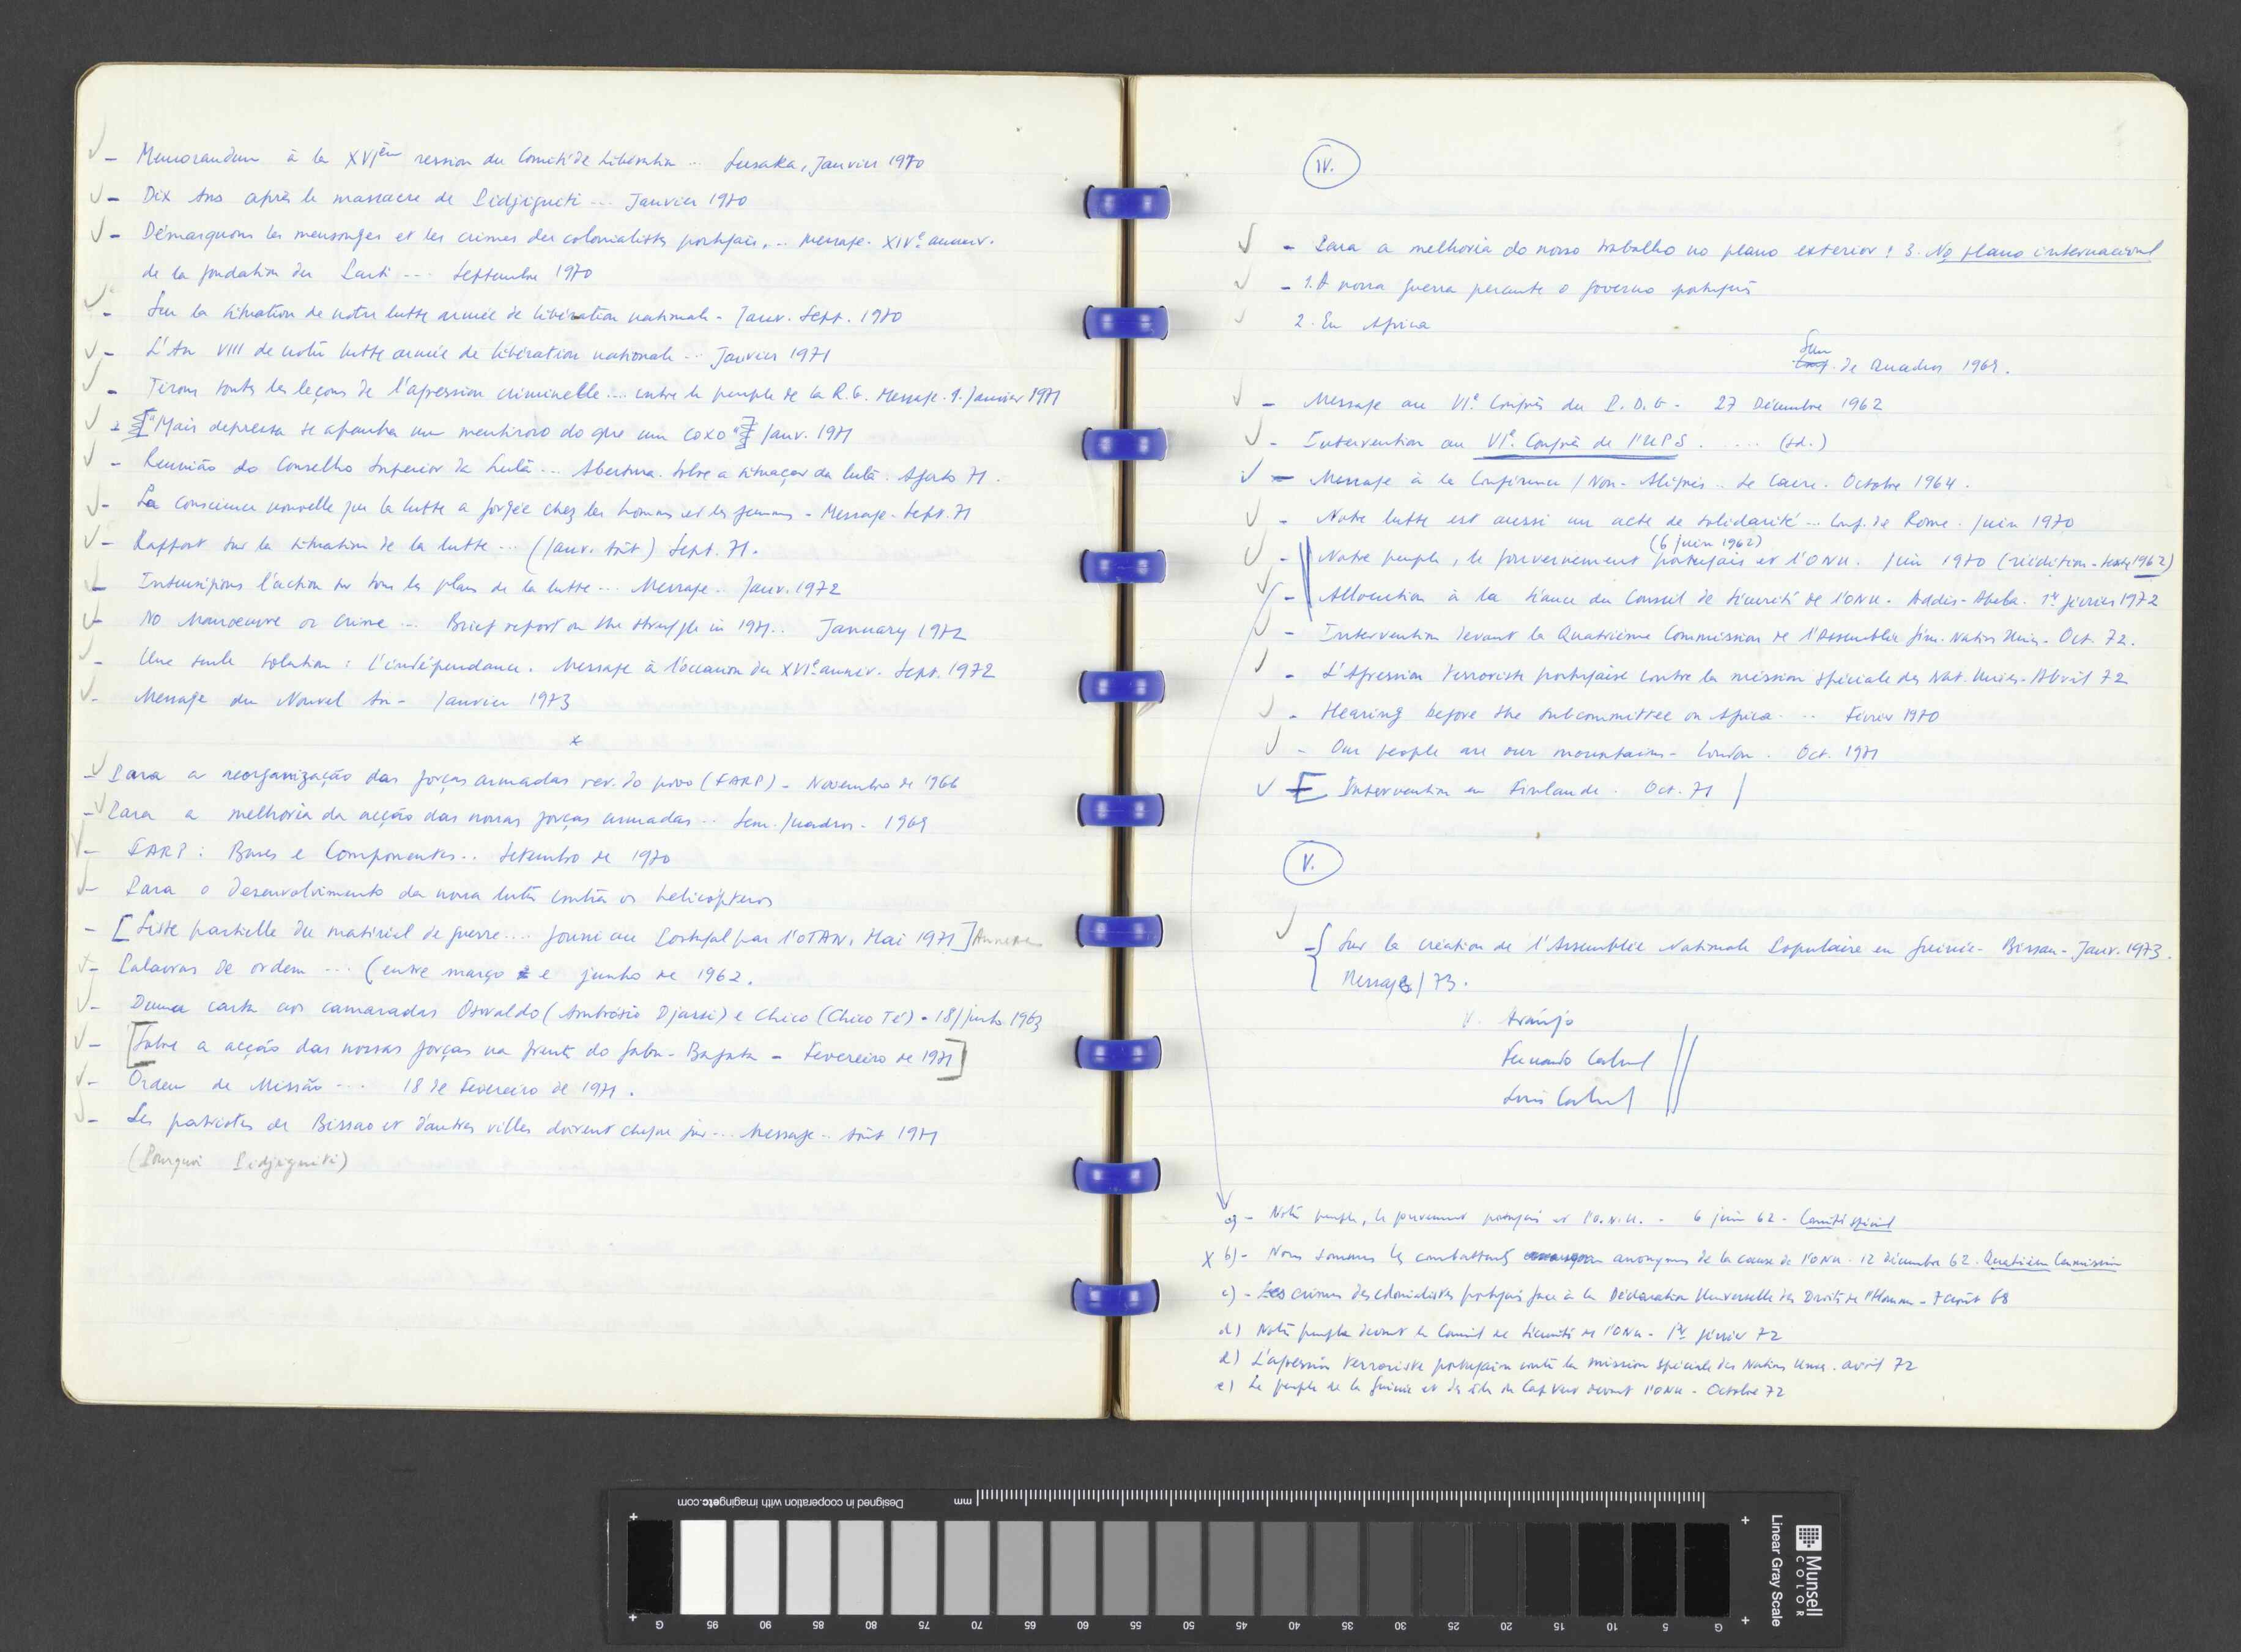 - Memorandum à la XVIèm session du Comité de Libération ... Lusaka, Janvier 1970
- Dix Ans après le massacre de Pidjiguiti ... Janvier 1970
- Démasquons les mensonges et les crimes des colonialistes portugais, .. Message. XIVe. anniv.
de la fondation du Parti ... Septembre 1970
- Sur la situation de notre lutte armée de libération nationale - Janv. Sept. 1970
- L'An VIII de notre lutte armée de libération nationale ... Janvier 1971
- Tirons toutes les leçons de l'agression criminelle .... contre le peuple de la R.G. Message. 1. Janvier 1971
- "Mais depressa se apanha um mentiroso do que um coxo" Janv. 1971
- Reunião do Conselho Superior da Luta ... Abertura. Sobre a situação da luta. Agosto 71.
- La conscience nouvelle que la lutte a forgée chez les hommes et les femmes - Message - Sept. 71
- Rapport sur la situation de la lutte ... (Janv. Août) Sept. 71.
- Intensifions l'action sur tous les plans de la lutte ... Message. Janv. 1972
- No Manoeuvre or Crime ... Brief report on the struggle in 1971.. January 1972
- Une seule solution : l'indépendance. Message à l'occasion du XVIe. anniv. Sept. 1972
- Message du Nouvel An - Janvier 1973
*
- Para a reorganização das forças armadas rev. do povo (FARP) - Novembro de 1966
- Para a melhoria da acção das nossas forças armadas .. Sem. Quadros - 1969
- FARP : Bases e Componentes .. Setembro de 1970
- Para o desenvolvimento da nossa luta contra os helicópteros
- [Liste partielle du matériel de guerre .... fourni au Portugal par l'OTAN, Mai 1971] Annexe
- Palavras de ordem ... (entre março e junho de 1962.
- Duma carta aos camaradas Osvaldo (Ambrósio Djassi) e Chico (Chico Té) - 18/junho 1963
- [Sobre a acção das nossas forças na frente do Gabu - Bafata - Fevereiro de 1971]
- Ordem de Missão ... 18 de Fevereiro de 1971.
- Les patriotes de Bissao et d'autres villes doivent chaque jour ... Message .. Août 1971
(Pourquoi Pidjiguiti)
IV.
- Para a melhoria do nosso trabalho no plano exterior : 3. No plano internacional
- 1. A nossa guerra perante o governo português
2. En Africa
Sem. de Quadros 1969.
- Message au VIe. Congrès du P.D.G - 27 Décembre 1962
- Intervention au VIe. Congrès de l'UPS. .... (sd.)
- Message à la Conférence / Non-Alignés .. Le Caire. Octobre 1964.
- Notre lutte est aussi un acte de solidarité ... Conf. de Rome. Juin 1970
(6 juin 1962)
- Notre peuple, le gouvernement portugais et l'ONU. Juin 1970 (réédition - texte 1962)
- Allocution à la séance du Conseil de Sécurité de l'ONU. Addis-Abeba. 1er février 1972
- Intervention devant la Quatrième Commission de l'Assemblée Gén. Nations Unies - Oct. 72.
- L'Agression terroriste portugaise contre la mission spéciale des Nat. Unies - Abril 72
- Hearing before the subcommittee on Africa ... Février 1970
- Our people are our mountains - London. Oct. 1971
- [Intervention en Finlande. Oct. 71
V.
- { Sur la création de l'Assemblée Nationale Populaire en Guinée-Bissau - Janv. 1973.
Messages / 73.
V. Araújo
Fernando Cabral
Luis Cabral
a) - Notre peuple, le gouvernement portugais et l'O.N.U. - 6 juin 62 - Comité spécial
X b) - Nous sommes les combattants anonymes de la cause de l'ONU - 12 décembre 62. Quatrième Commission
c) - Les crimes des colonialistes portugais face à la Déclaration Universelle des Droits de l'Homme - 7 août 68
d) Notre peuple devant le Conseil de Sécurité de l'ONU - 1er février 72
d) L'agression terroriste portugaise contre la mission spéciale des Nations Unies. avril 72
e) Le peuple de la Guinée et des îles du Cap Vert devant l'ONU - Octobre 72
Designed in cooperation with imagingetc.com
mm
G 95 90 85 80 75 70 65 60 55 50 45 40 35 30 25 20 15 10 5 G
Linear Gray Scale
Munsell
COLOR